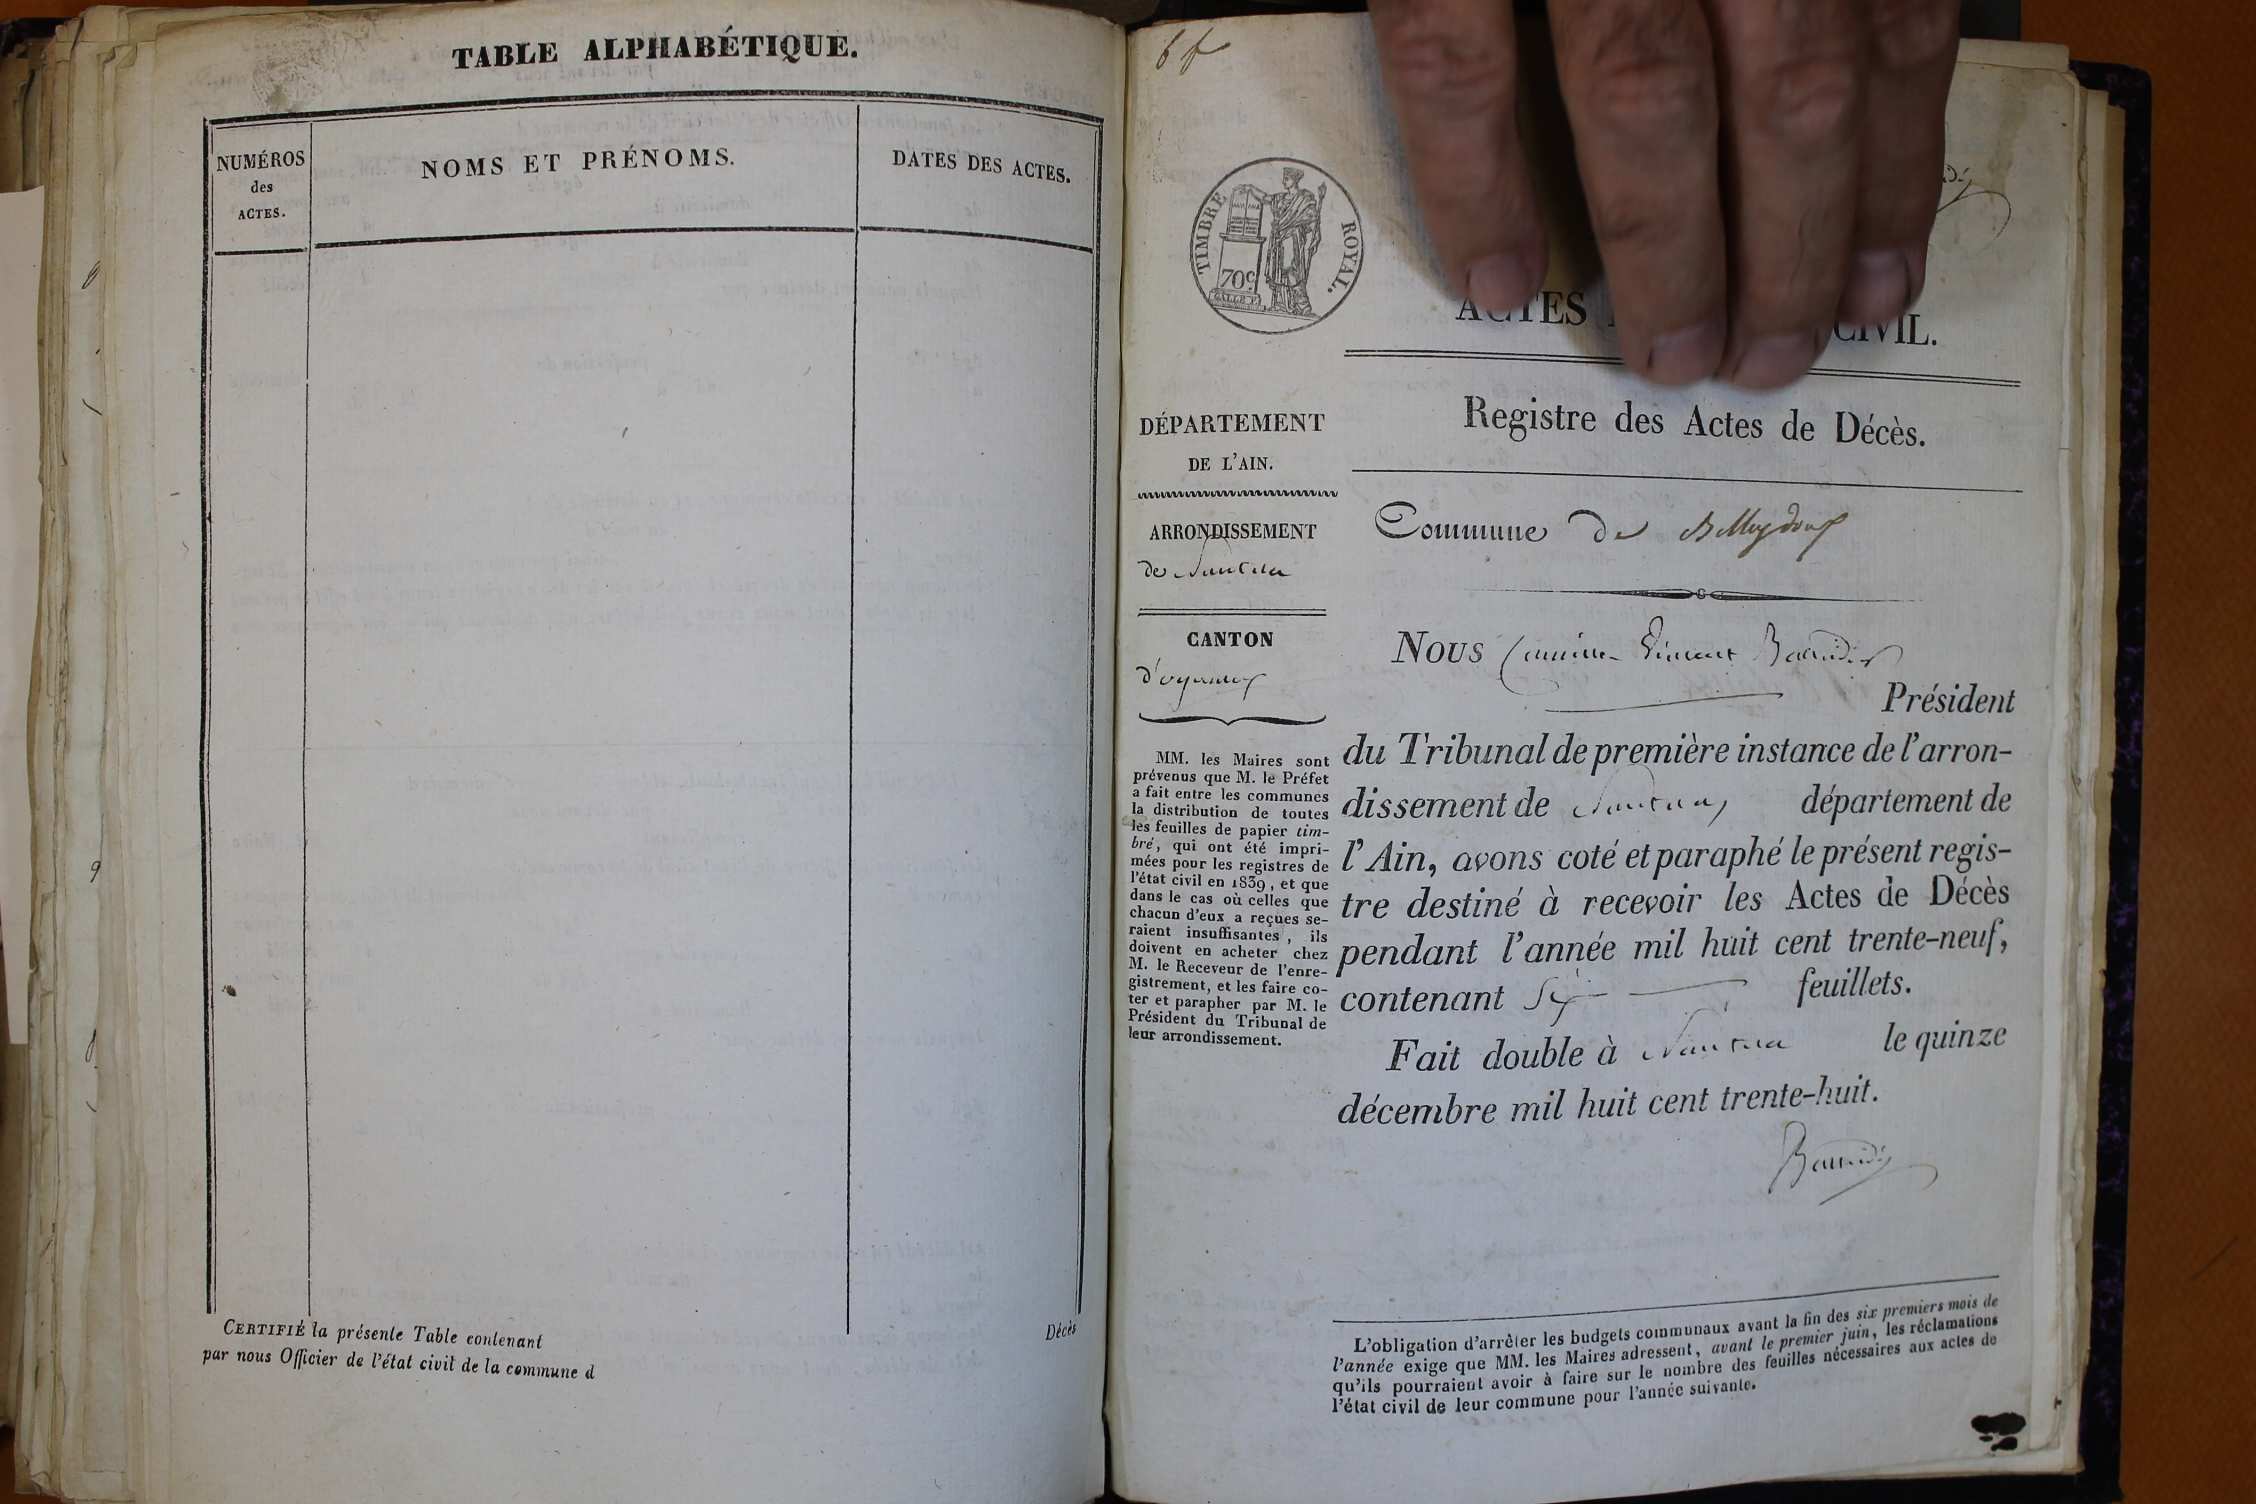 TABLE ALPHABÉTIQUE.
NUMÉROS
des
ACTES.
NOMS ET PRÉNOMS.
DATES DES ACTES.
CERTIFIÉ la présente Table contenant Décès
par nous Officier de l'état civil de la commune d
6 f
TIMBRE ROYAL.
70c
ACTES CIVIL.
Registre des Actes de Décès.
DÉPARTEMENT
DE L'AIN.
ARRONDISSEMENT
de Nantua
CANTON
d'oyonnax
MM. les Maires sont
prévenus que M. le Préfet
a fait entre les communes
la distribution de toutes
les feuilles de papier tim-
bré, qui ont été impri-
mées pour les registres de
l'état civil en 1839, et que
dans le cas où celles que
chacun d'eux a reçues se-
raient insuffisantes, ils
doivent en acheter chez
M. le Receveur de l'enre-
gistrement, et les faire co-
ter et parapher par M. le
Président du Tribunal de
leur arrondissement.
Commune de Belleydoux
Nous
Président
du Tribunal de première instance de l'arron-
dissement de Nantua, département de
l'Ain, avons coté et paraphé le présent regis-
tre destiné à recevoir les Actes de Décès
pendant l'année mil huit cent trente-neuf,
contenant Six feuillets.
Fait double à Nantua le quinze
décembre mil huit cent trente-huit.
L'obligation d'arrêter les budgets communaux avant la fin des six premiers mois de
l'année exige que MM. les Maires adressent, avant le premier juin, les réclamations
qu'ils pourraient avoir à faire sur le nombre des feuilles nécessaires aux actes de
l'état civil de leur commune pour l'année suivante.